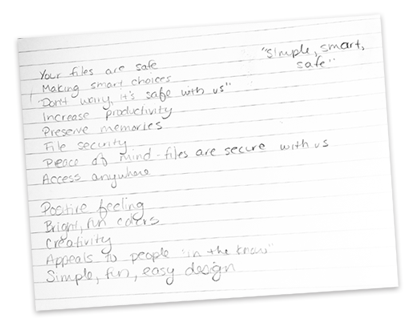 "Simple, smart,
safe"
Your files are safe
Making smart choices
Don't worry, it's safe with us"
Increase productivity
Preserve memories
File security
Peace of mind - files are secure with us
Access anywhere
Positive feeling
Bright, fun colors
Creativity
Appeals to people "in the know"
Simple, fun, easy design